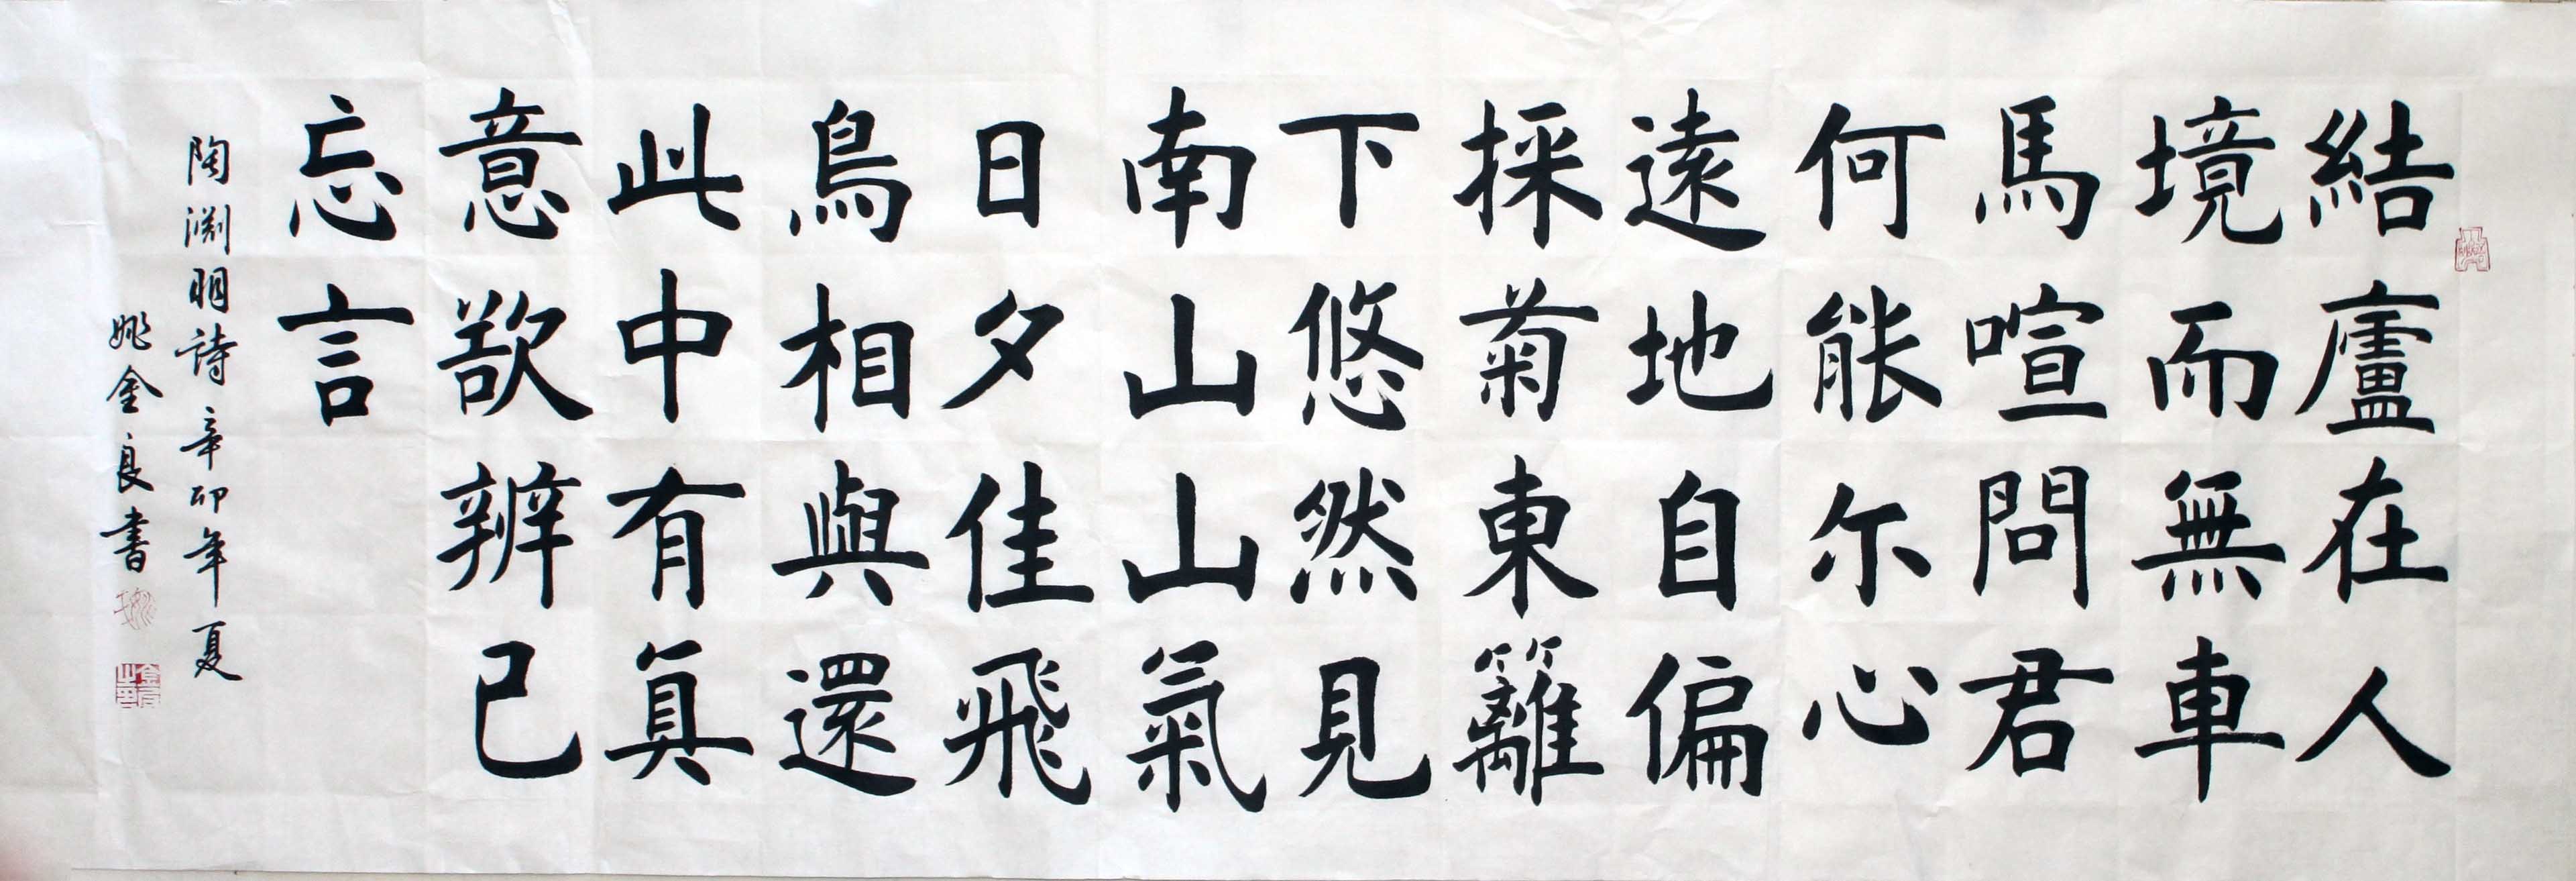 結廬在人
境而無車
馬喧問君
何能尔心
遠地自偏
採菊東籬
下悠然見
南山山氣
日夕佳飛
鳥相與還
此中有真
意欲辨已
忘言
陶淵明詩辛卯年夏
姚金良書